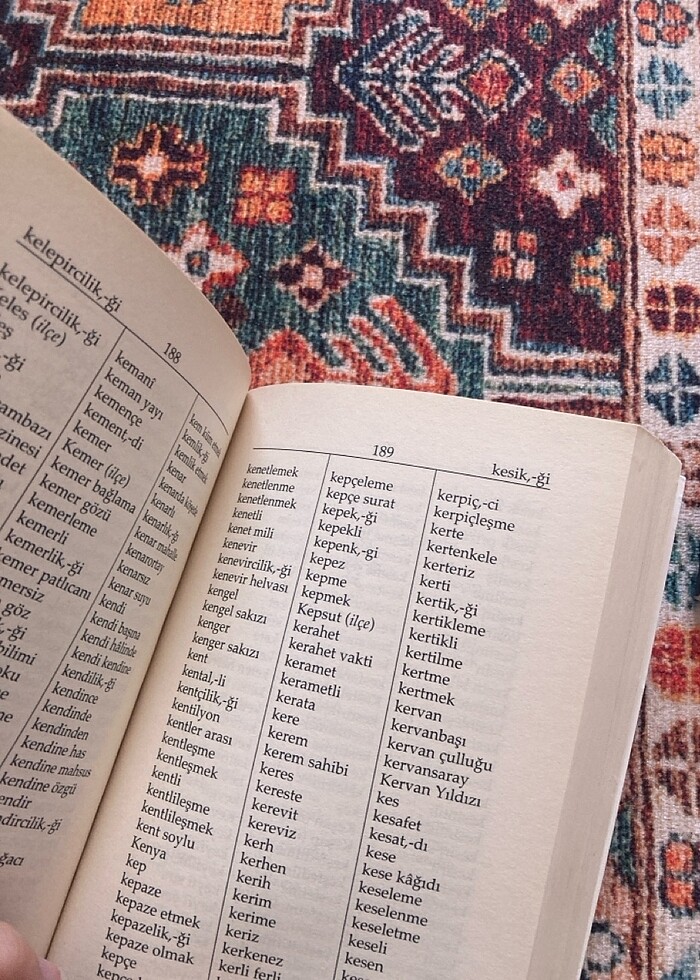 kelepircilik,-ği
188
kelepircilik,-ği
(ilçe)
kemanî
keman yayı
kemençe
kement,-di
kemer
Kemer (ilçe)
kemer bağlama
kemer gözü
kemerleme
kemerli
kemerlik,-ği
kemer patlıcanı
kemlik,-ği
kemlik etmek
kenar
kenarda köşede
kenarlı
kenarlık,-ğı
kenar mahalle
kenarortay
kenarsız
kenar suyu
kendi
kendi başına
kendi hâlinde
kendi kendine
kendilik,-ği
kendince
kendinde
kendinden
kendine has
kendine mahsus
kendine özgü
189
kesik,-ği
kenetlemek
kenetlenme
kenetlenmek
kenetli
kenet mili
kenevir
kenevircilik,-ği
kenevir helvası
kengel
kengel sakızı
kenger
kenger sakızı
kent
kental,-li
kentçilik,-ği
kentilyon
kentler arası
kentleşme
kentleşmek
kentli
kentlileşme
kentlileşmek
kent soylu
Kenya
kep
kepaze
kepaze etmek
kepazelik,-ği
kepaze olmak
kepçe
kepçeleme
kepçe surat
kepek,-ği
kepekli
kepenk,-gi
kepez
kepme
kepmek
Kepsut (ilçe)
kerahet
kerahet vakti
keramet
kerametli
kerata
kere
kerem
kerem sahibi
keres
kereste
kerevit
kereviz
kerh
kerhen
kerih
kerim
kerime
keriz
kerkenez
kerli ferli
kerpiç,-ci
kerpiçleşme
kerte
kertenkele
kerteriz
kerti
kertik,-ği
kertikleme
kertikli
kertilme
kertme
kertmek
kervan
kervanbaşı
kervan çulluğu
kervansaray
Kervan Yıldızı
kes
kesafet
kesat,-dı
kese
kese kâğıdı
keseleme
keselenme
keseletme
keseli
kesen